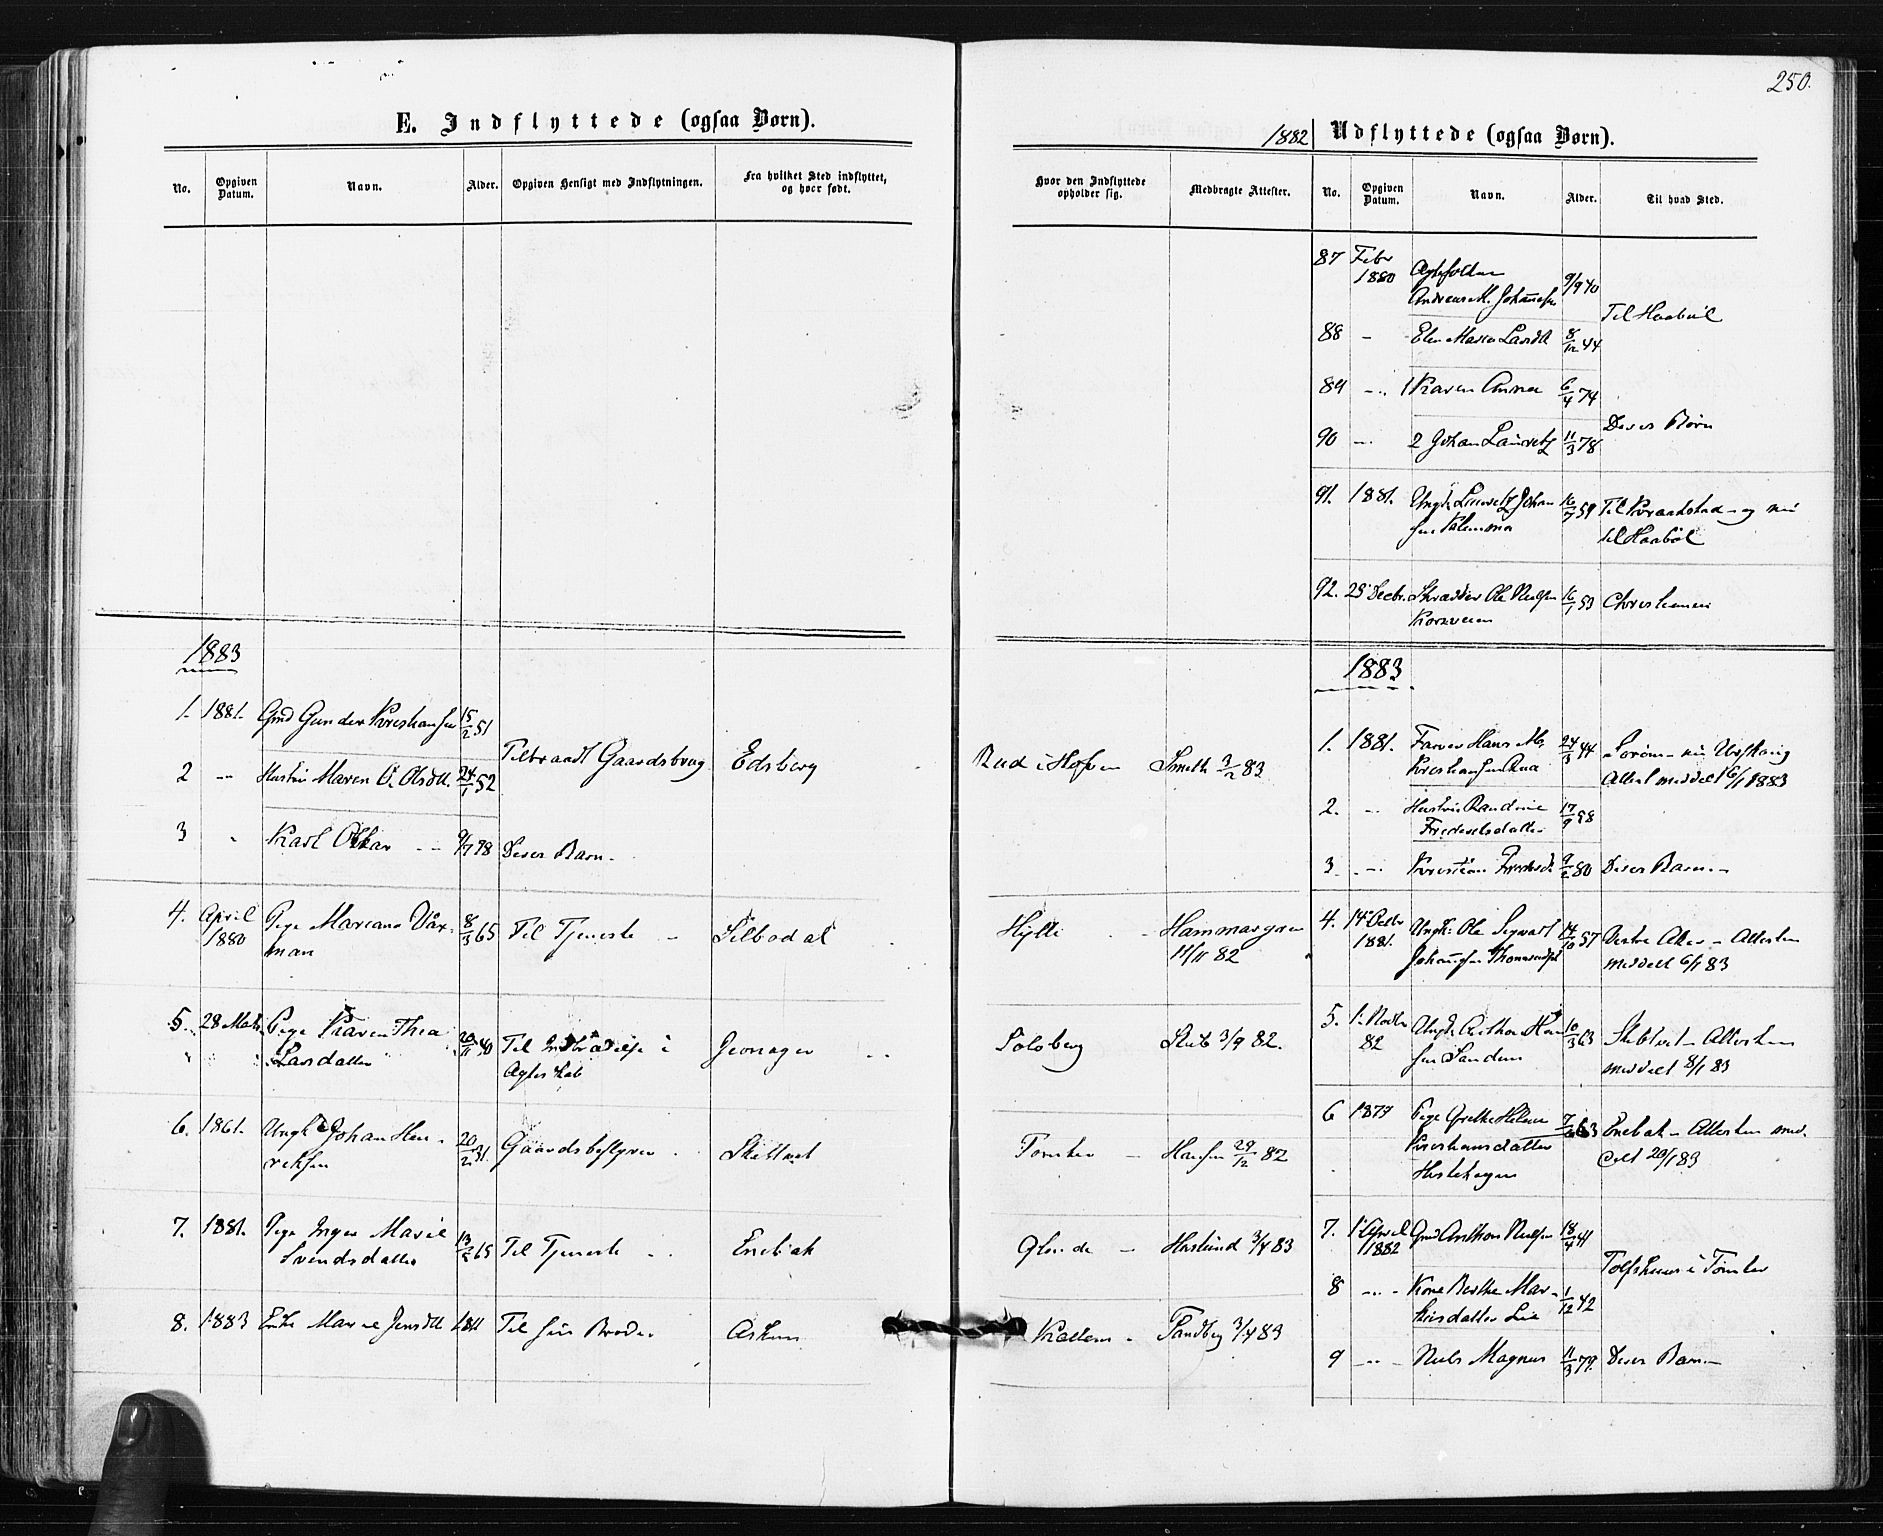 250.
E. Indflyttede (ogsaa Børn).
No.
Opgiven Datum.
Navn.
Alder.
Opgiven Hensigt med Indflytningen.
Fra hvilket Sted indflyttet, og hvor født.
1883
1. 1881. Gmd Gunder Kristiansen 15/2 51
Tiltraadt Gaardsbrug Edsberg
2 -"- Hustru Maren O. Olsdtt. 24/1 52
3 " Karl Otkar 9/7 78 Deres Barn.
4. April 1880 Pige Mariane Vax-
man 8/3 65 Til Tjeneste - Silbodal
5. 28 Pige Karen Thea
Larsdatter 20/11 40 Til Indtrædelse i
Ægteskab
6. 1861. Ungk. Johan Hen-
riksen 20/2 31. Gaardsbestyrer Skibtvet
7. 1881. Pige Inger Marie
Svendsdatter 13/2 65 Til Tjeneste Enebak
8. 1883 Enke Marie Jensdtt 1811 Til sin Broder Askim
Hvor den Indflyttede opholder sig.
Medbragte Attester.
Rud i Smith 3/2 83
Hylli Hammargren
11/11 82
Solberg Stub 3/9 82.
Tomter - Hansen 29/12 82
Haslund 3/4 83
Kallum - Sandberg 3/4 83
1882 Udflyttede (ogsaa Børn).
No.
Opgiven Datum.
Navn.
Alder.
Til hvad Sted.
87 Febr 1880 Ægtefolkene
Andreas M. Johannesen 9/9 40
Til Haabøl
88 - Elen Maria Larsdtt 8/12 44
89 -"- 1 Karen Anna 6/4 74
Deres Børn
90 -"- 2 Johan Lauritz 11/3 78
91. 1881. Ungk. Lauritz Johan-
sen 16/7 59 Til Kraakstad - og nu
til Haabøl
92. 29 Decbr. Skrædder Ole Nilsen
Kornveien 16/1 53 Christiania
1883
1. 1881. Farver Hans M.
Kristiansen Rua 24/3 44 Sørum - nu Urskoug
Attest meddelt 6/1 1883
2. -"- Hustru Randine
Fredriksdatter 17/9 58
3 -"- Kristian 9/2 80 Deres Barn -
4. 14 Octbr 1881. Ungk. Ole Sigvart
Johansen 14/10 57 Vestre Aker - Attesten
meddelt 6/1 83
5. 1. Novbr 82 Ungk. Anthon Han-
sen Sandum 10/3 63 Skibtvet - Attesten
meddelt 8/1 83
6 1879 Pige Grethe Helene
Kristiansdatter
Hestehagen 63 Enebak - Attesten med-
delt 20/1 83
7. 1 April 1882 Gmd Anthon Nilsen 18/4 41
i Tomter
8 -"- Kone Berthe Mar-
thinsdatter Lie 1/12 42
9 -"- Nils Magnus 11/3 79. Deres Barn -